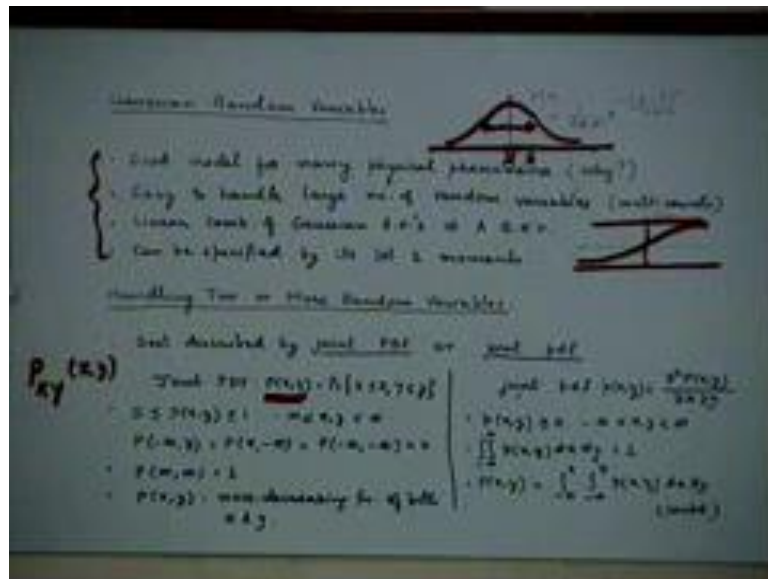 Gaussian Random Variables
· Good model for many physical phenomena (why?)
· Easy to handle large no. of random variables
· Linear comb of Gaussian r.v.'s is A G.r.v.
· Can be specified by its 1st 2 moments
Handling Two or More Random Variables
Best described by joint PDF or joint pdf
P_xy (x,y)
Joint PDF P(x,y) = Pr{X ≤ x, Y ≤ y}
· 0 ≤ P(x,y) ≤ 1 -∞ < x,y < ∞
P(-∞,y) = P(x,-∞) = P(-∞,-∞) = 0
· P(∞,∞) = 1
· P(x,y) - non-decreasing fn of both
x & y
joint pdf p(x,y) = ∂²P(x,y)/∂x∂y
· p(x,y) ≥ 0 -∞ < x,y < ∞
· ∫∫ p(x,y) dx dy = 1
· P(x,y) = ∫ ∫ p(x,y) dx dy
(contd)